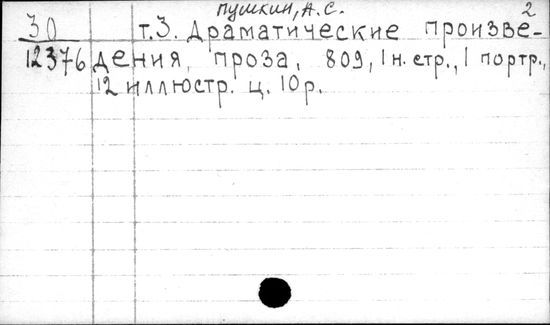 Пушкин, А.С.
2
30 т.3. Драматические произве-
12376 дения, проза, 809, 1 н. стр., 1 портр.,
12 иллюстр. ц. 10 р.